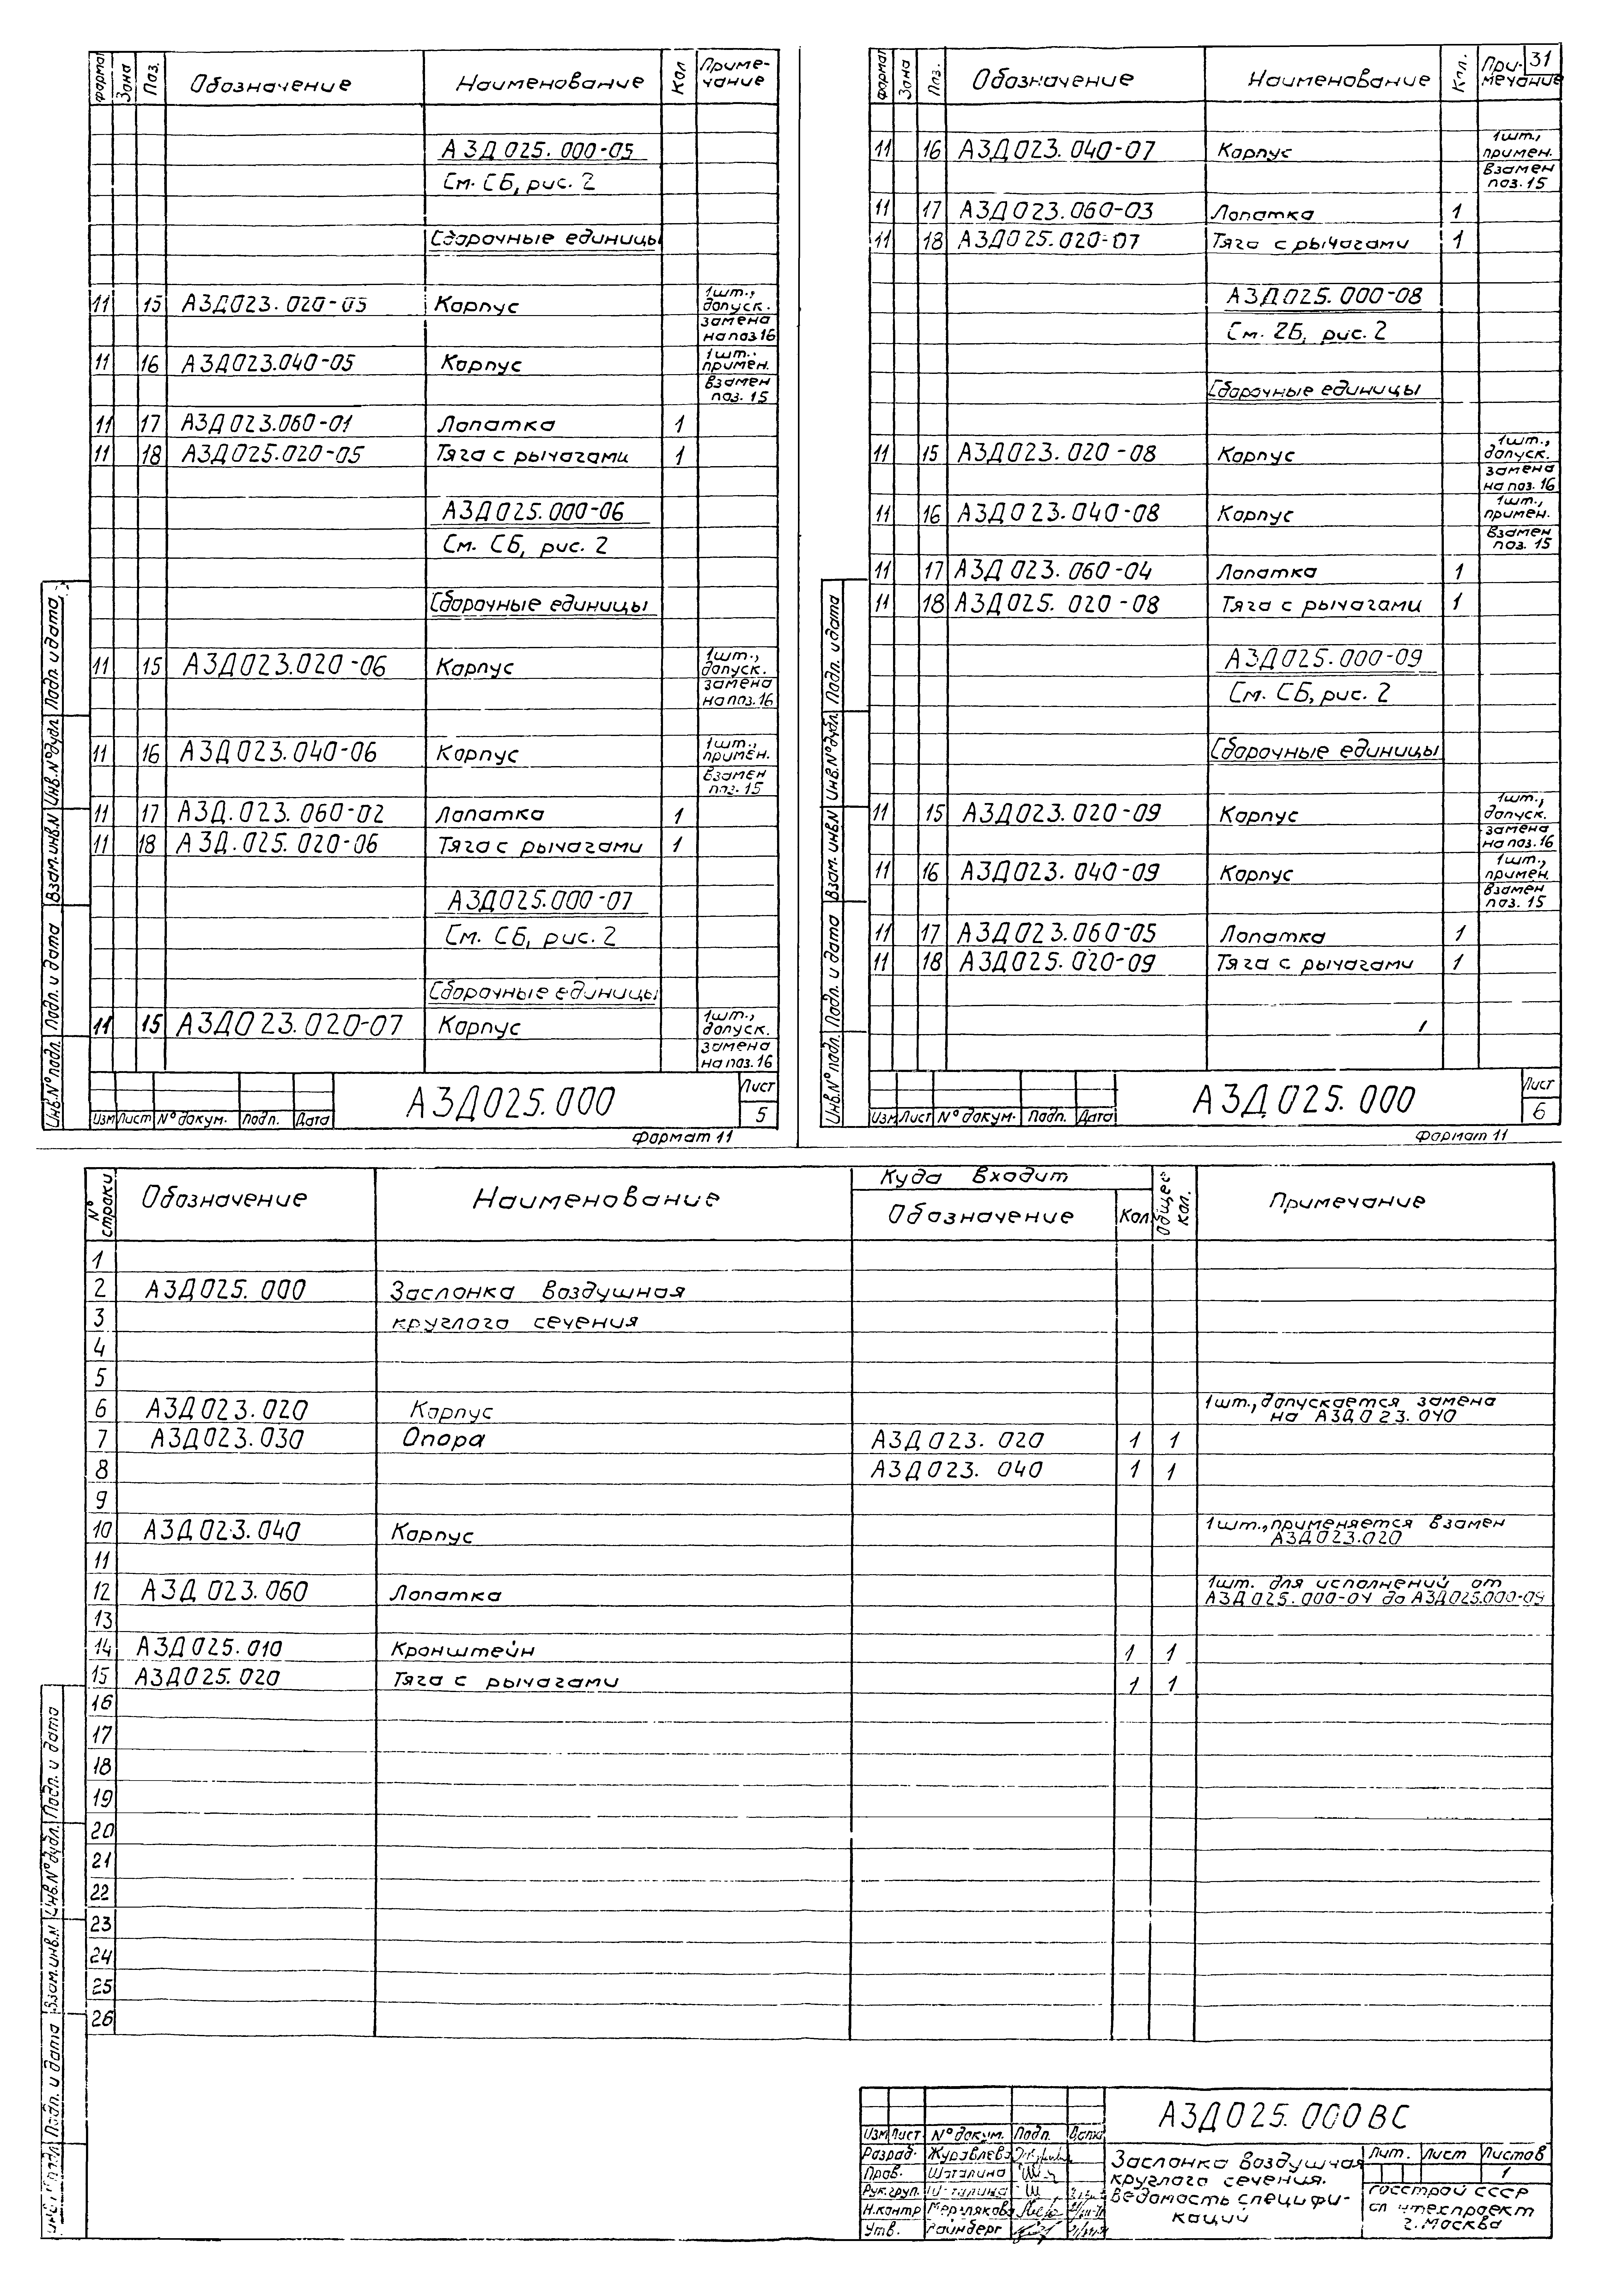 Формат Зона Поз. Обозначение Наименование Кол Приме-
чание
АЗД025.000-05
См. СБ, рис. 2
Сборочные единицы
11 15 АЗД023.020-05 Корпус 1шт.,
допуск.
замена
на поз 16
11 16 АЗД023.040-05 Корпус 1шт.,
примен.
взамен
поз. 15
11 17 АЗД023.060-01 Лопатка 1
11 18 АЗД025.020-05 Тяга с рычагами 1
АЗД025.000-06
См. СБ, рис. 2
Сборочные единицы
11 15 АЗД023.020-06 Корпус 1шт.,
допуск.
замена
на поз. 16
11 16 АЗД023.040-06 Корпус 1шт.,
примен.
взамен
поз. 15
11 17 АЗД.023.060-02 Лопатка 1
11 18 АЗД.025.020-06 Тяга с рычагами 1
АЗД025.000-07
См. СБ, рис. 2
Сборочные единицы
11 15 АЗД023.020-07 Корпус 1шт.,
допуск.
замена
на поз. 16
Инв.N°подл. Подп. и дата Взам.инв.N Инв.N°дубл. Подп. и дата
Изм Лист N°докум. Подп. Дата
АЗД025.000
Лист
5
Формат 11
31
Формат Зона Поз. Обозначение Наименование Кол. При-
мечание
11 16 АЗД023.040-07 Корпус 1шт.,
примен.
взамен
поз. 15
11 17 АЗД023.060-03 Лопатка 1
11 18 АЗД025.020-07 Тяга с рычагами 1
АЗД025.000-08
См. 2Б, рис. 2
Сборочные единицы
11 15 АЗД023.020-08 Корпус 1шт.,
допуск.
замена
на поз. 16
11 16 АЗД023.040-08 Корпус 1шт.,
примен.
взамен
поз. 15
11 17 АЗД023.060-04 Лопатка 1
11 18 АЗД025.020-08 Тяга с рычагами 1
АЗД025.000-09
См. СБ, рис. 2
Сборочные единицы
11 15 АЗД023.020-09 Корпус 1шт.,
допуск.
замена
на поз. 16
11 16 АЗД023.040-09 Корпус 1шт.,
примен.
взамен
поз. 15
11 17 АЗД023.060-05 Лопатка 1
11 18 АЗД025.020-09 Тяга с рычагами 1
Инв.N°подл. Подп. и дата Взам.инв.N Инв.N°дубл. Подп. и дата
Изм Лист N°докум. Подп. Дата
АЗД025.000
Лист
6
Формат 11
N° строки Обозначение Наименование Куда входит Общее кол. Примечание
Обозначение Кол.
1
2 АЗД025.000 Заслонка воздушная
3 круглого сечения
4
5
6 АЗД023.020 Корпус 1шт., допускается замена
на АЗД023.040
7 АЗД023.030 Опора АЗД023.020 1 1
8 АЗД023.040 1 1
9
10 АЗД023.040 Корпус 1шт., применяется взамен
АЗД023.020
11
12 АЗД023.060 Лопатка 1шт. для исполнений от
АЗД025.000-04 до АЗД025.000-09
13
14 АЗД025.010 Кронштейн 1 1
15 АЗД025.020 Тяга с рычагами 1 1
16
17
18
19
20
21
22
23
24
25
26
Подп. и дата Взам.инв.N Инв.N°дубл. Подп. и дата
АЗД025.000ВС
Изм Лист N°докум. Подп. Дата
Разраб. Журавлева
Пров. Шаталина
Рук.груп. Шаталина
Н.контр
Утв. Райнберг
Заслонка воздушная
круглого сечения.
Ведомость специфи-
каций
Лит. Лист Листов
1
Госстрой СССР
г. Москва